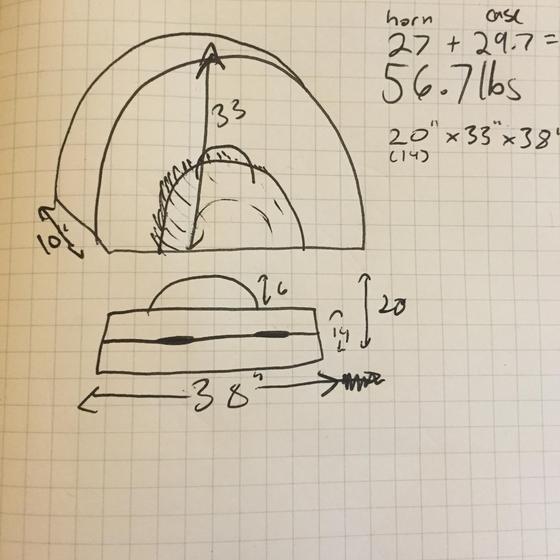 horn case
27 + 29.7 =
56.7 lbs
20" x 33" x 38"
(14)
33
10"
6
20
14
38"